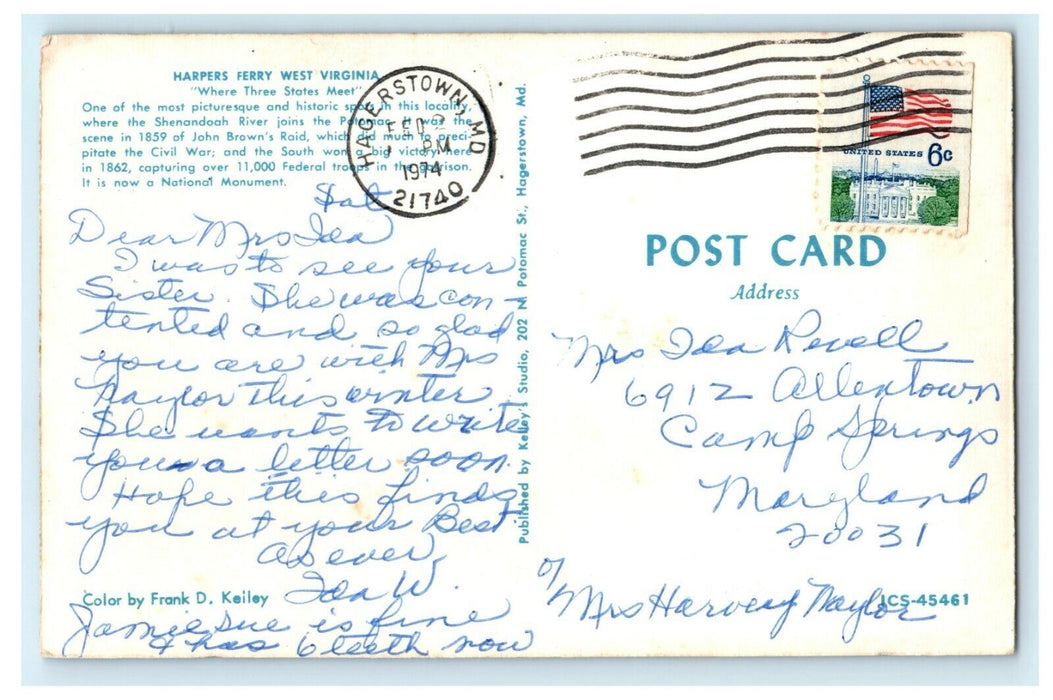 HARPERS FERRY WEST VIRGINIA
"Where Three States Meet"
One of the most picturesque and historic spots in this locality,
where the Shenandoah River joins the Potomac. It was the
scene in 1859 of John Brown's Raid, which did much to preci-
pitate the Civil War; and the South won a big victory here
in 1862, capturing over 11,000 Federal troops in the garrison.
It is now a National Monument.
HAGERSTOWN, MD
FEB 2
PM
1974
21740
UNITED STATES 6c
Sat
Dear Mrs Ida
I was to see your
Sister. She was con-
tented and so glad
you are with Mrs
Naylor this winter
She wants to write
you a letter soon.
Hope this finds
you at your Best
As ever,
Ida W.
Jamie Sue is fine
& has 6 teeth now
Color by Frank D. Keiley
Published by Kelley's Studio, 202 N. Potomac St., Hagerstown, Md.
POST CARD
Address
Mrs Ida Revell
6912 Allentown
Camp Springs
Maryland
20031
c/o
Mrs Harvey Naylor
ICS-45461